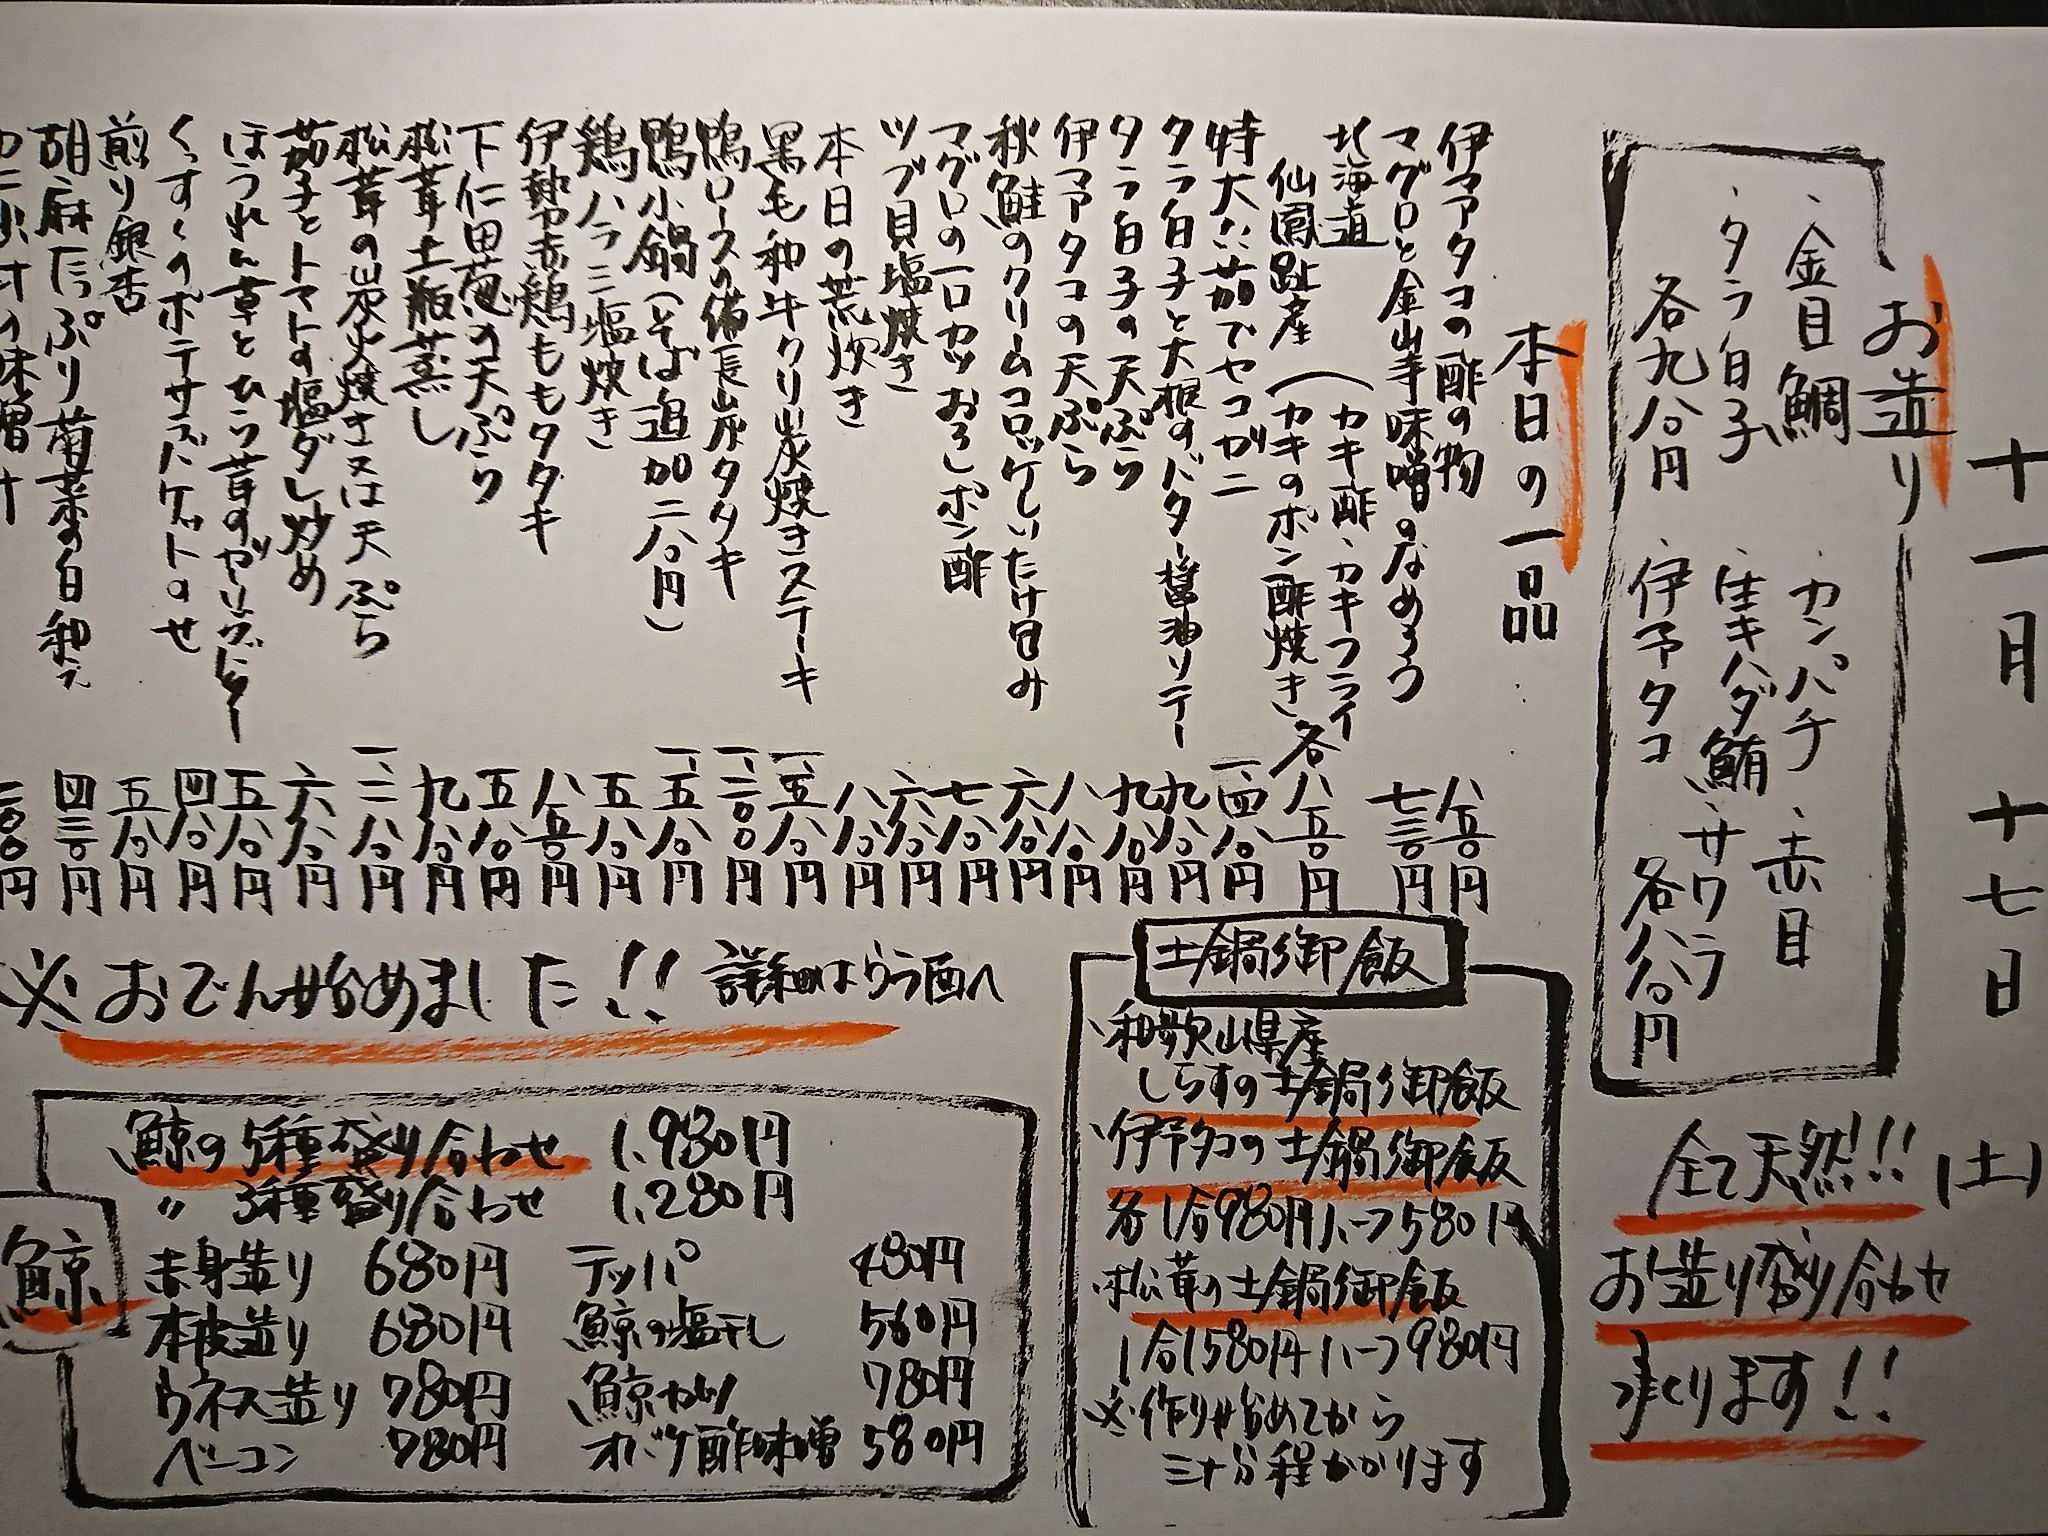 十一月十七日(土)
お造り
・金目鯛
・タラ白子
各九八〇円
・カンパチ・赤目
・生キハダ鮪・サワラ
・伊予タコ
各八八〇円
全て天然!!
お造り盛り合わせ
承ります!!
本日の一品
伊予タコの酢の物 八五〇円
マグロと金山寺味噌のなめろう 七三〇円
北海道
仙鳳趾産(カキ酢・カキフライ
カキのポン酢焼き 各八五〇円
特大 茹でセコガニ 一、四八〇円
タラ白子と大根のバター醤油ソテー 九八〇円
タラ白子の天ぷら 九八〇円
伊予タコの天ぷら 八八〇円
秋鮭のクリームコロッケしいたけ包み 六八〇円
マグロの一口カツおろしポン酢 七八〇円
ツブ貝塩焼き 六八〇円
本日の荒炊き 八八〇円
黒毛和牛クリ炭焼きステーキ 一、五八〇円
鴨ロースの備長炭タタキ 一、二〇〇円
鴨小鍋(そば追加二八〇円) 一、五八〇円
鶏ハラミ塩焼き 五八〇円
伊勢赤鶏ももタタキ 八五〇円
下仁田葱の天ぷら 五八〇円
松茸土瓶蒸し 九八〇円
松茸の炭火焼き又は天ぷら 一、二八〇円
茄子とトマトの塩ダレ炒め 六八〇円
ほうれん草とひら茸のガーリックバター 五八〇円
くんすくのポテサラバケットのせ 四八〇円
煎り銀杏 五八〇円
胡麻たっぷり菊菜の白和え 四三〇円
土鍋御飯
・和歌山県産
しらすの土鍋御飯
・伊予タコの土鍋御飯
各1合980円ハーフ580円
・松茸の土鍋御飯
1合1580円ハーフ980円
※作り始めてから
三十分程かかります
※おでん始めました!! 詳細はウラ面へ
鯨
鯨の5種盛り合わせ 1,980円
〃 3種盛り合わせ 1,280円
赤身造り 680円 テッパ 480円
本皮造り 680円 鯨の塩干し 560円
ウネス造り 780円 鯨カツ 780円
ベーコン 780円 オバケ酢味噌 580円